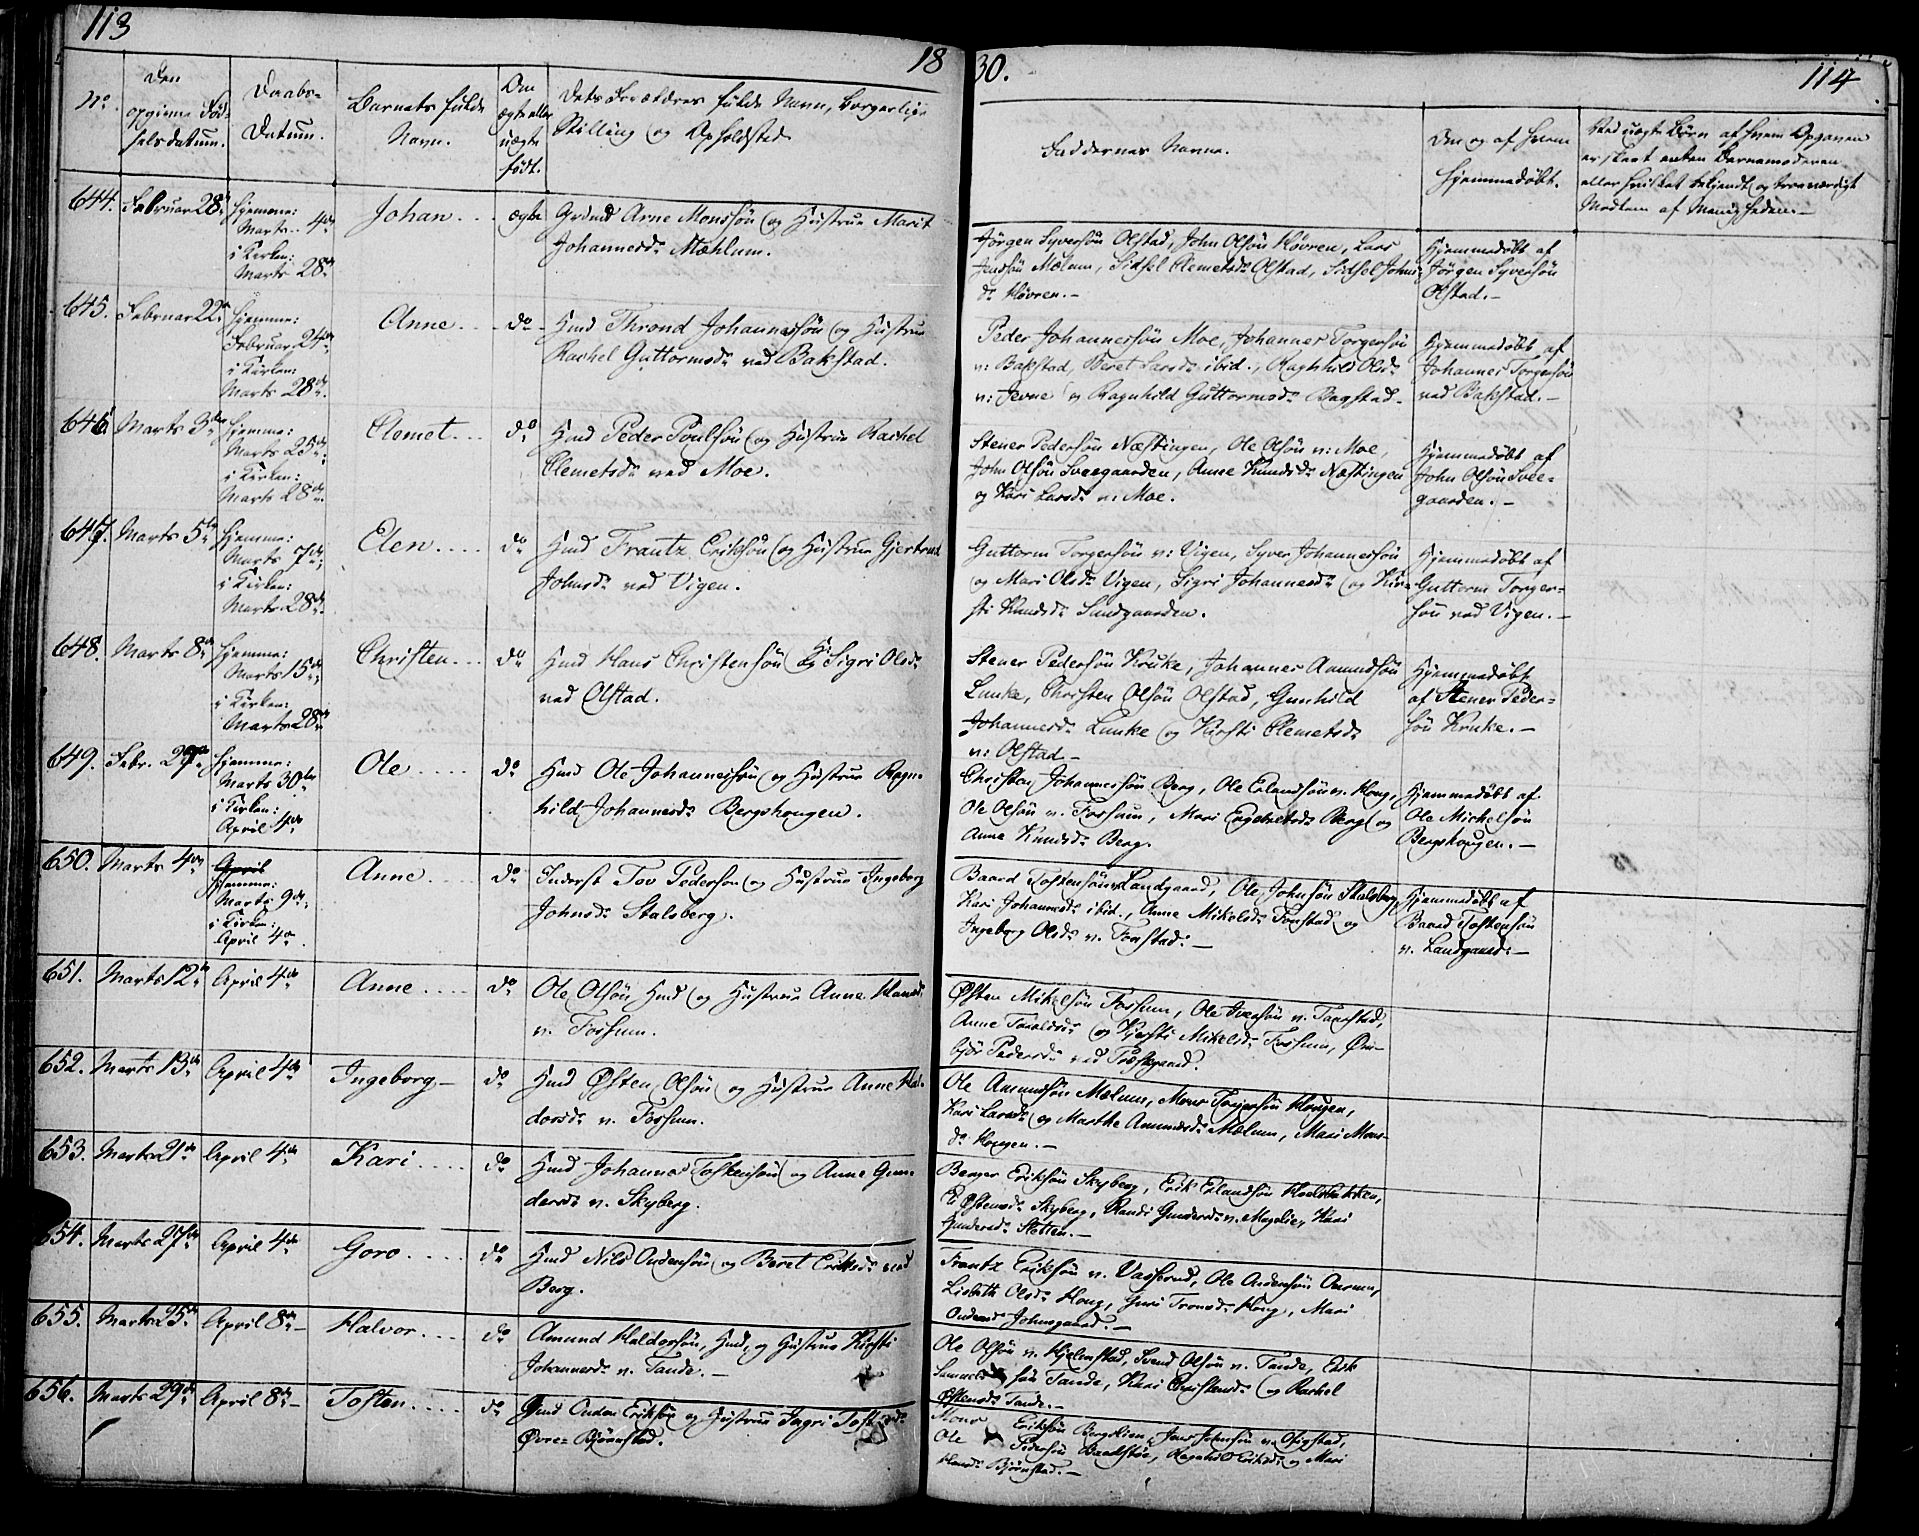 113
18
30.
114
No.
Den
opgivne Fød-
selsdatum.
Daabs-
Datum.
Barnets fulde
Navn.
Om
ægte eller
uægte
født.
Dets Forældres fulde Navn, borgerlige
Stilling og Opholdsted
Faddernes Navne.
Om og af hvem
hjemmedøbt.
Ved uægte Børn af hvem Opgaven
er skeet enten Barnemoderen
eller hvilket bekjendt og troeværdigt
Medlem af Menigheden.—
644. Februar 28
hjemme:
Marts 4de
i Kirken:
Marts 28de
Johan
ægte
Grdmd Arne Monssøn og Hustrue Marit
Johannesd: Mæhlum.
Jørgen Syversøn Olstad, John Olsøn Høvren, Lars
Jensøn Mælum, Sidsel Clemetsd: Olstad, Sidsel Johns
d: Høvren.—
Hjemmedøbt af
Jørgen Syversøn
Olstad.—
645. Februar 22
hjemme:
Februar 24de
i Kirken:
Marts 28de
Anne
do
Hmd Thrond Johannessøn og Hustrue
Rachel Guttormsd: ved Bakstad.
Peder Johannessøn Moe, Johannes Torgersøn
v: Bakstad, Beret Larsd: ibid., Ragnhild Olsd:
v: Jevne og Ragnhild Guttormsd: Bagstad.
Hjemmedøbt af
Johannes Torgersøn
ved Bakstad.—
646. Marts 3
hjemme:
Marts 25de
i Kirken:
Marts 28de
Clemet
do
Hmd Peder Poulsøn og Hustrue Rachel
Clemetsd: ved Moe.
Stener Pedersøn Næstingen, Ole Olsøn v: Moe,
John Olsøn Sveegaarden, Anne Knudsd: Næstingen
og Kari Larsd: v: Moe.
Hjemmedøbt af
John Olsøn Svee-
gaarden.—
647. Marts 5te
hjemme:
Marts 7de
i Kirken:
Marts 28de
Elen
do
Hmd Frantz Eriksøn og Hustrue Gjertrud
Johnsd: ved Vigen.
Guttorm Torgersøn v: Vigen, Syver Johannessøn
og Mari Olsd: Vigen, Sigri Johannesd: og Kir-
sti Knudsd: Sandgaarden.
Hjemmedøbt af
Guttorm Torger-
søn ved Vigen.—
648. Marts 8de
hjemme:
Marts 15de
i Kirken:
Marts 28de
Christen
do
Hmd Hans Christensøn og H: Sigri Olsd:
ved Olstad.
Stener Pedersøn Kruke, Johannes Amundsøn
Lunke, Christen Olsøn Olstad, Gunhild
Johannesd: Lunke og Kirsti Clemetsd:
v: Olstad—
Hjemmedøbt
af Stener Peder-
søn Kruke.—
649. Febr. 29
hjemme:
Marts 30te
i Kirken:
April 4de
Ole
do
Hmd Ole Johannessøn og Hustrue Ragn-
hild Johannesd: Bergshougen.
Christen Johannessøn Berg, Ole Erlandsøn v. Houg,
Ole Olsøn v. Fossum, Mari Engebretsd: Berg og
Anne Knudsd: Berg.
Hjemmedøbt af
Ole Michelsøn
Bergshougen.—
650. Marts 4de
April
hjemme:
Marts 9de
i Kirken:
April 4de
Anne
do
Inderst Tov Pedersøn og Hustrue Ingeborg
Johnsd: Stalsberg.
Baard Tostensøn v. Landgaard, Ole Johnsøn Stalsberg,
Kari Johannesd: ibid., Anne Mikelsd: Fonstad og
Ingeborg Olsd: v. Fonstad:—
Hjemmedøbt af
Baard Tostensøn
v. Landgaard:—
651. Marts 12
April 4de
Anne
do
Ole Olsøn Hmd og Hustrue Anne Hansd:
v. Fossum.
Østen Mikelsøn Fossum, Ole Iversøn v. Taarstad,
Anne Toraldsd: og Kjersti Mikelsd: Fossum,
Pedersd: ved
652. Marts 13de
April 4de
Ingeborg
do
Hmd Østen Olsøn og Hustrue Anne Hal-
dorsd: v. Fossum.
Ole Amundsøn Mælum, Mons Torgersøn Hougen,
Kari Larsd: og Marthe Amundsd: Mælum, Mari Mons-
d: Hougen.—
653. Marts 21de
April 4de
Kari
do
Hmd Johannes Tostensøn og Anne Gun-
dersd: v. Skyberg.
Berger Eriksøn Skyberg, Erik Erlandsøn
Østensd: Skyberg, Randi Gundersd: v. Moglie, Kari
Gundersd: Sletten.—
654. Marts 27de
April 4de
Goro
do
Hmd Nils Ondensøn og Beret Eriksd: ved
Berg.
Frantz Eriksøn v. Vasrud, Ole Ondensøn
Lisbeth Olsd: Houg, Guri Tronsd: Houg, Mari
Ondensd: Johnsgaard.—
655. Marts 25de
April 8de
Halvor
do
Amund Haldorsøn, Hmd, og Hustrue Kirsti
Johannesd: v. Tande.—
Ole Olsøn v. Hjelmstad, Svend Olsøn v. Tande, Erik
søn Tande, Kari Christensd: og Rachel
Østensd: Tande.—
656. Marts 29de
April 8de
Tosten
do
Hmd Onden Eriksøn og Hustrue Ingri Tostensd:
Øvre-Bjørnstad.
Mons Eriksøn Bergslien, Jens Johnsøn v.
Ole Pedersøn Baadstøe, Ragnhild Eriksd: og Mari
Hansd: Bjørnstad.—